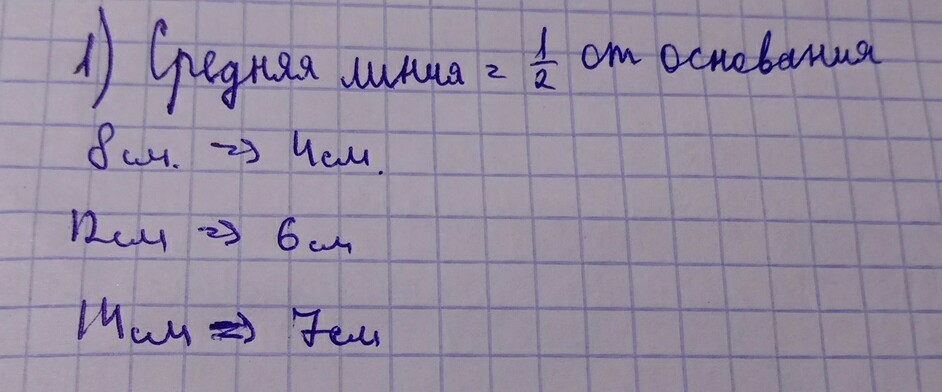 1) Средняя линия = 1/2 от основания
8см. => 4см.
12см => 6см
14см => 7см